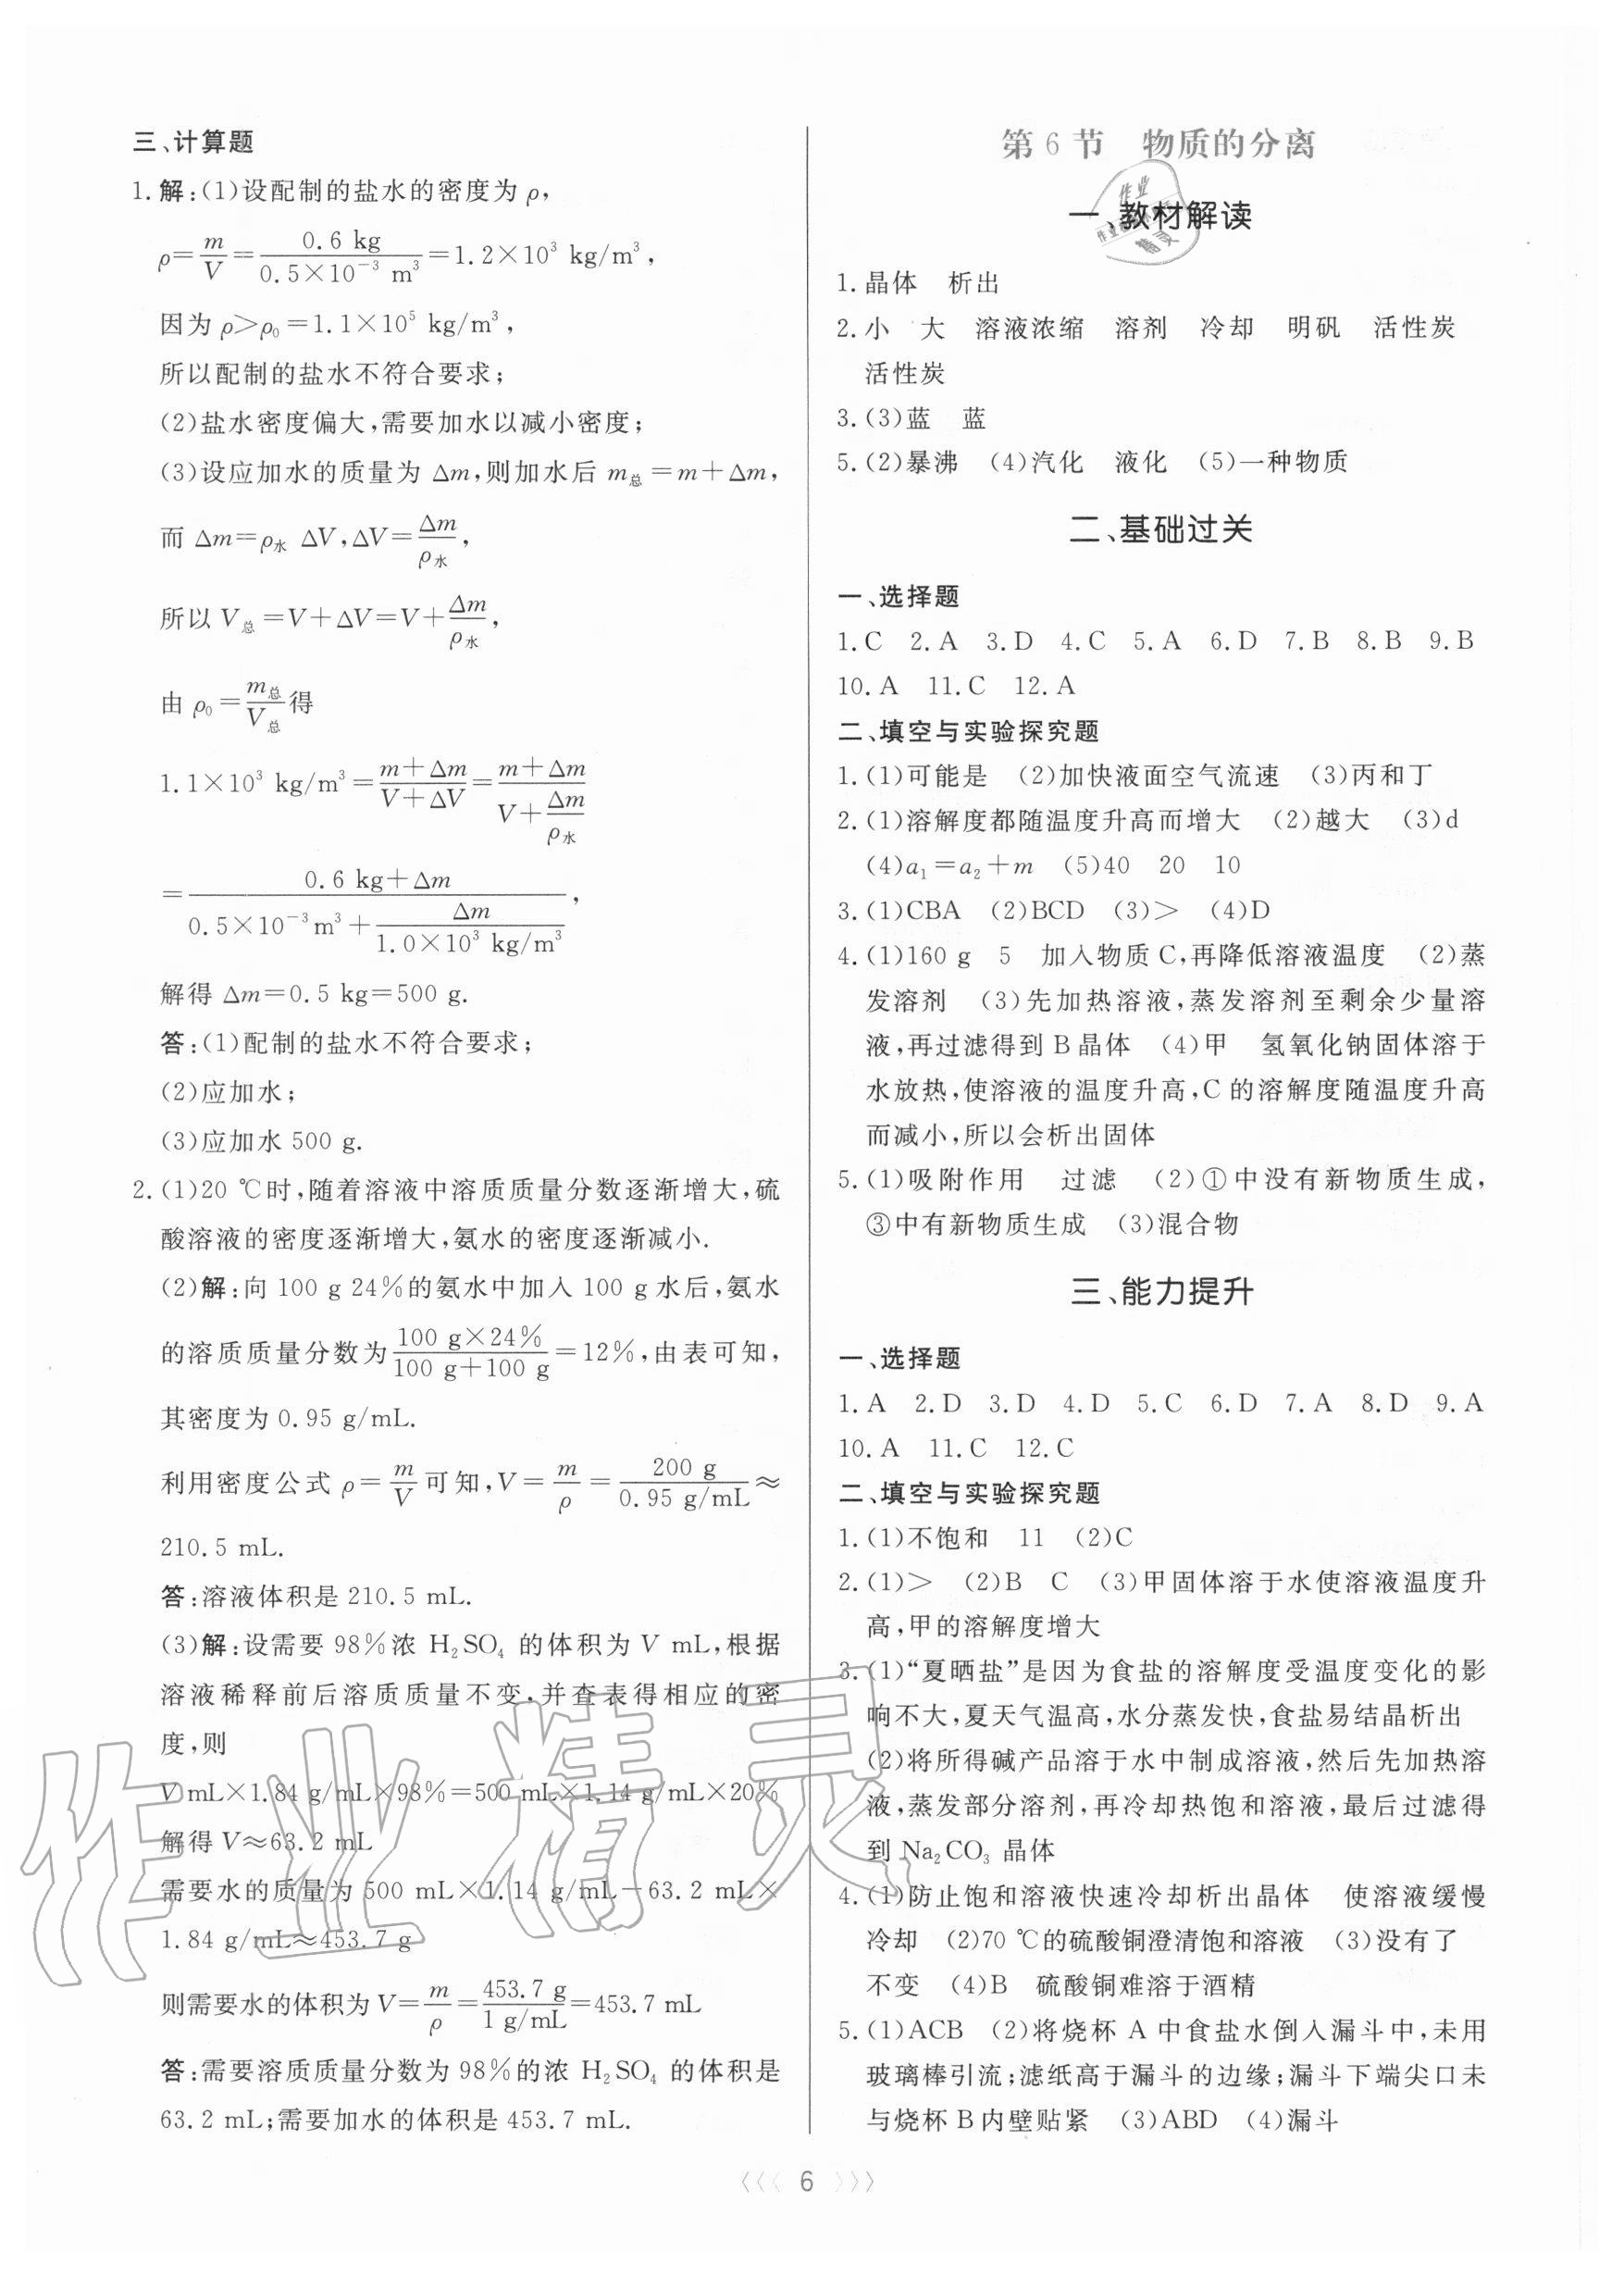 三、计算题
1.解:(1)设配制的盐水的密度为 ρ,
ρ=m/V=0.6 kg/(0.5×10⁻³ m³)=1.2×10³ kg/m³,
因为 ρ>ρ₀=1.1×10⁵ kg/m³,
所以配制的盐水不符合要求;
(2)盐水密度偏大,需要加水以减小密度;
(3)设应加水的质量为 Δm,则加水后 m总=m+Δm,
而 Δm=ρ水 ΔV,ΔV=Δm/ρ水,
所以 V总=V+ΔV=V+Δm/ρ水,
由 ρ₀=m总/V总得
1.1×10³ kg/m³=(m+Δm)/(V+ΔV)=(m+Δm)/(V+Δm/ρ水)
=(0.6 kg+Δm)/(0.5×10⁻³m³+Δm/(1.0×10³ kg/m³)),
解得 Δm=0.5 kg=500 g.
答:(1)配制的盐水不符合要求;
(2)应加水;
(3)应加水 500 g.
2.(1)20 ℃时,随着溶液中溶质质量分数逐渐增大,硫
酸溶液的密度逐渐增大,氨水的密度逐渐减小.
(2)解:向 100 g 24%的氨水中加入 100 g 水后,氨水
的溶质质量分数为(100 g×24%)/(100 g+100 g)=12%,由表可知,
其密度为 0.95 g/mL.
利用密度公式 ρ=m/V可知,V=m/ρ=200 g/(0.95 g/mL)≈
210.5 mL.
答:溶液体积是 210.5 mL.
(3)解:设需要 98%浓 H₂SO₄ 的体积为 V mL,根据
溶液稀释前后溶质质量不变,并查表得相应的密
度,则
V mL×1.84 g/mL×98%=500 mL×1.14 g/mL×20%
解得 V≈63.2 mL
需要水的质量为 500 mL×1.14 g/mL-63.2 mL×
1.84 g/mL≈453.7 g
则需要水的体积为 V=m/ρ=453.7 g/(1 g/mL)=453.7 mL
答:需要溶质质量分数为 98%的浓 H₂SO₄ 的体积是
63.2 mL;需要加水的体积是 453.7 mL.
第 6 节 物质的分离
一、教材解读
1.晶体 析出
2.小 大 溶液浓缩 溶剂 冷却 明矾 活性炭
活性炭
3.(3)蓝 蓝
5.(2)暴沸 (4)汽化 液化 (5)一种物质
二、基础过关
一、选择题
1.C 2.A 3.D 4.C 5.A 6.D 7.B 8.B 9.B
10.A 11.C 12.A
二、填空与实验探究题
1.(1)可能是 (2)加快液面空气流速 (3)丙和丁
2.(1)溶解度都随温度升高而增大 (2)越大 (3)d
(4)a₁=a₂+m (5)40 20 10
3.(1)CBA (2)BCD (3)> (4)D
4.(1)160 g 5 加入物质 C,再降低溶液温度 (2)蒸
发溶剂 (3)先加热溶液,蒸发溶剂至剩余少量溶
液,再过滤得到 B 晶体 (4)甲 氢氧化钠固体溶于
水放热,使溶液的温度升高,C 的溶解度随温度升高
而减小,所以会析出固体
5.(1)吸附作用 过滤 (2)①中没有新物质生成,
③中有新物质生成 (3)混合物
三、能力提升
一、选择题
1.A 2.D 3.D 4.D 5.C 6.D 7.A 8.D 9.A
10.A 11.C 12.C
二、填空与实验探究题
1.(1)不饱和 11 (2)C
2.(1)> (2)B C (3)甲固体溶于水使溶液温度升
高,甲的溶解度增大
3.(1)“夏晒盐”是因为食盐的溶解度受温度变化的影
响不大,夏天气温高,水分蒸发快,食盐易结晶析出
(2)将所得碱产品溶于水中制成溶液,然后先加热溶
液,蒸发部分溶剂,再冷却热饱和溶液,最后过滤得
到 Na₂CO₃ 晶体
4.(1)防止饱和溶液快速冷却析出晶体 使溶液缓慢
冷却 (2)70 ℃的硫酸铜澄清饱和溶液 (3)没有了
不变 (4)B 硫酸铜难溶于酒精
5.(1)ACB (2)将烧杯 A 中食盐水倒入漏斗中,未用
玻璃棒引流;滤纸高于漏斗的边缘;漏斗下端尖口未
与烧杯 B 内壁贴紧 (3)ABD (4)漏斗
作业精灵
《〈 6 〉》